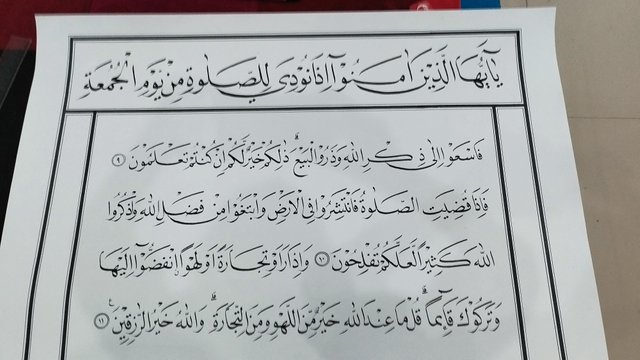 يَا أَيُّهَا الَّذِينَ آمَنُوا إِذَا نُودِيَ لِلصَّلَوٰةِ مِنْ يَوْمِ الْجُمُعَةِ
فَاسْعَوْا إِلَىٰ ذِكْرِ اللَّهِ وَذَرُوا الْبَيْعَ ۚ ذَٰلِكُمْ خَيْرٌ لَكُمْ إِنْ كُنْتُمْ تَعْلَمُونَ ٩
فَإِذَا قُضِيَتِ الصَّلَوٰةُ فَانْتَشِرُوا فِي الْأَرْضِ وَابْتَغُوا مِنْ فَضْلِ اللَّهِ وَاذْكُرُوا
اللَّهَ كَثِيرًا لَعَلَّكُمْ تُفْلِحُونَ ١٠ وَإِذَا رَأَوْا تِجَارَةً أَوْ لَهْوًا انْفَضُّوا إِلَيْهَا
وَتَرَكُوكَ قَائِمًا ۚ قُلْ مَا عِنْدَ اللَّهِ خَيْرٌ مِنَ اللَّهْوِ وَمِنَ التِّجَارَةِ ۚ وَاللَّهُ خَيْرُ الرَّازِقِينَ ١١